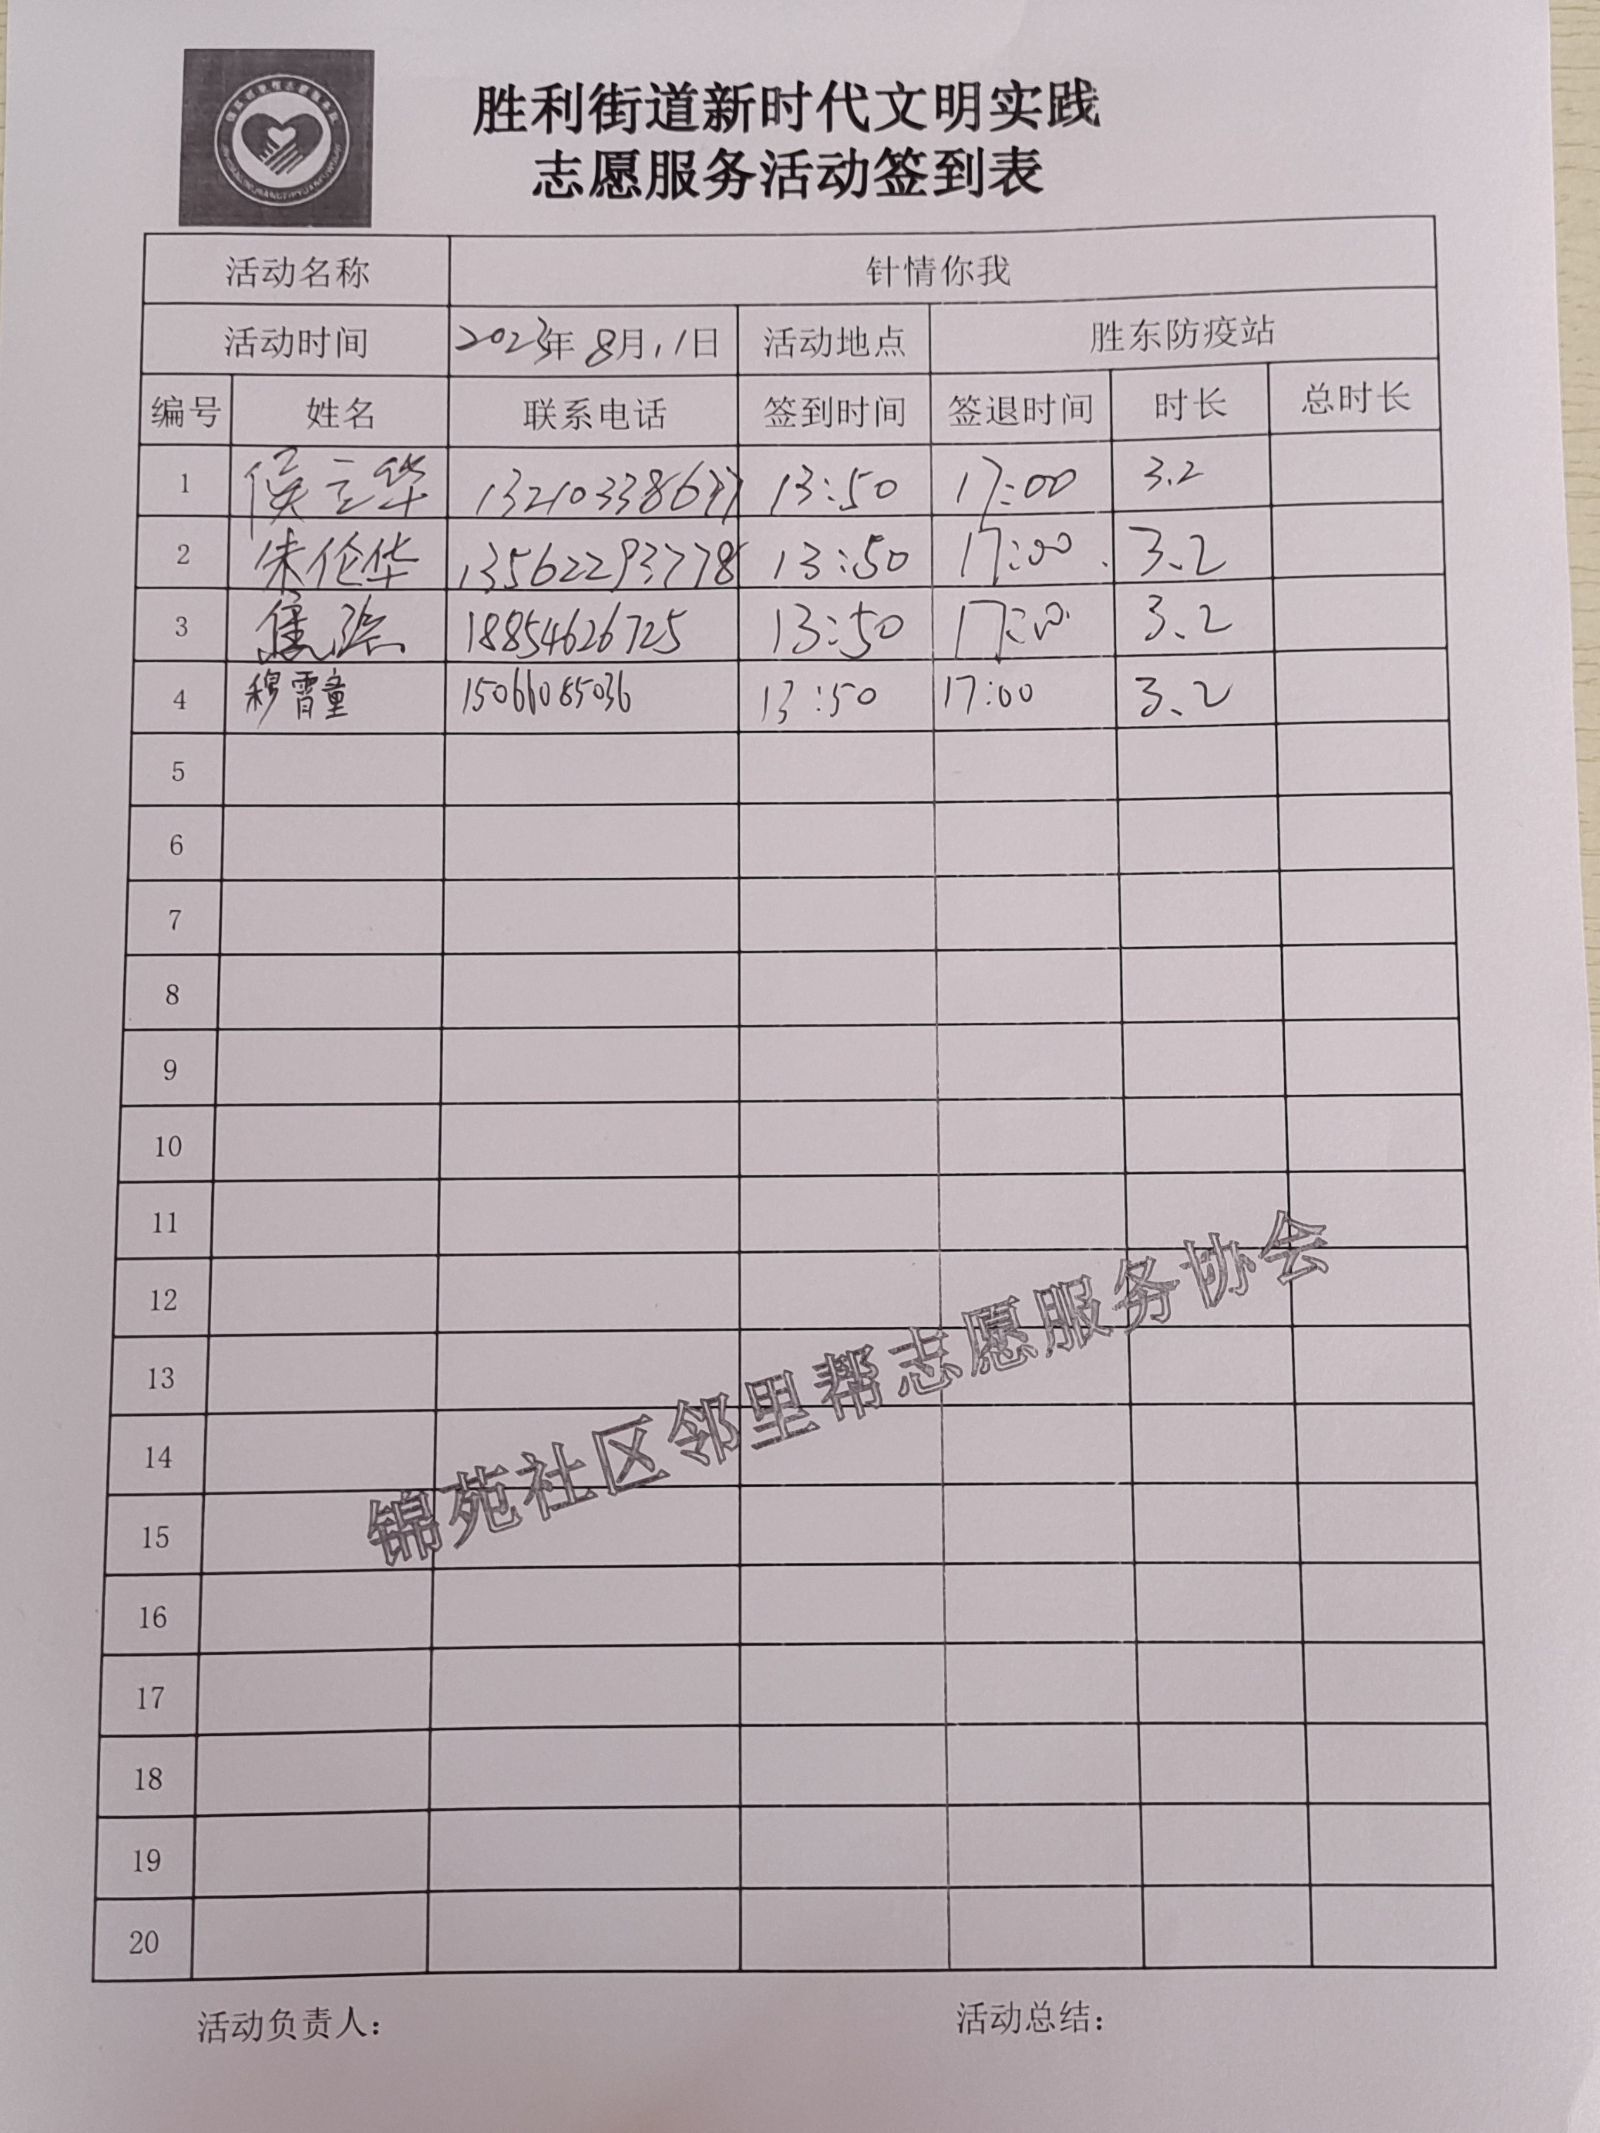 胜利街道新时代文明实践
志愿服务活动签到表
活动名称 针情你我
活动时间 2023年8月11日 活动地点 胜东防疫站
编号 姓名 联系电话 签到时间 签退时间 时长 总时长
1 侯立华 13:50 17:00 3.2
2 朱伦华 13562293778 13:50 17:00 3.2
3 18854626725 13:50 17:00 3.2
4 穆霄童 15066085036 13:50 17:00 3.2
5
6
7
8
9
10
11
12
13
14
15
16
17
18
19
20
锦苑社区邻里帮志愿服务协会
活动负责人: 活动总结: